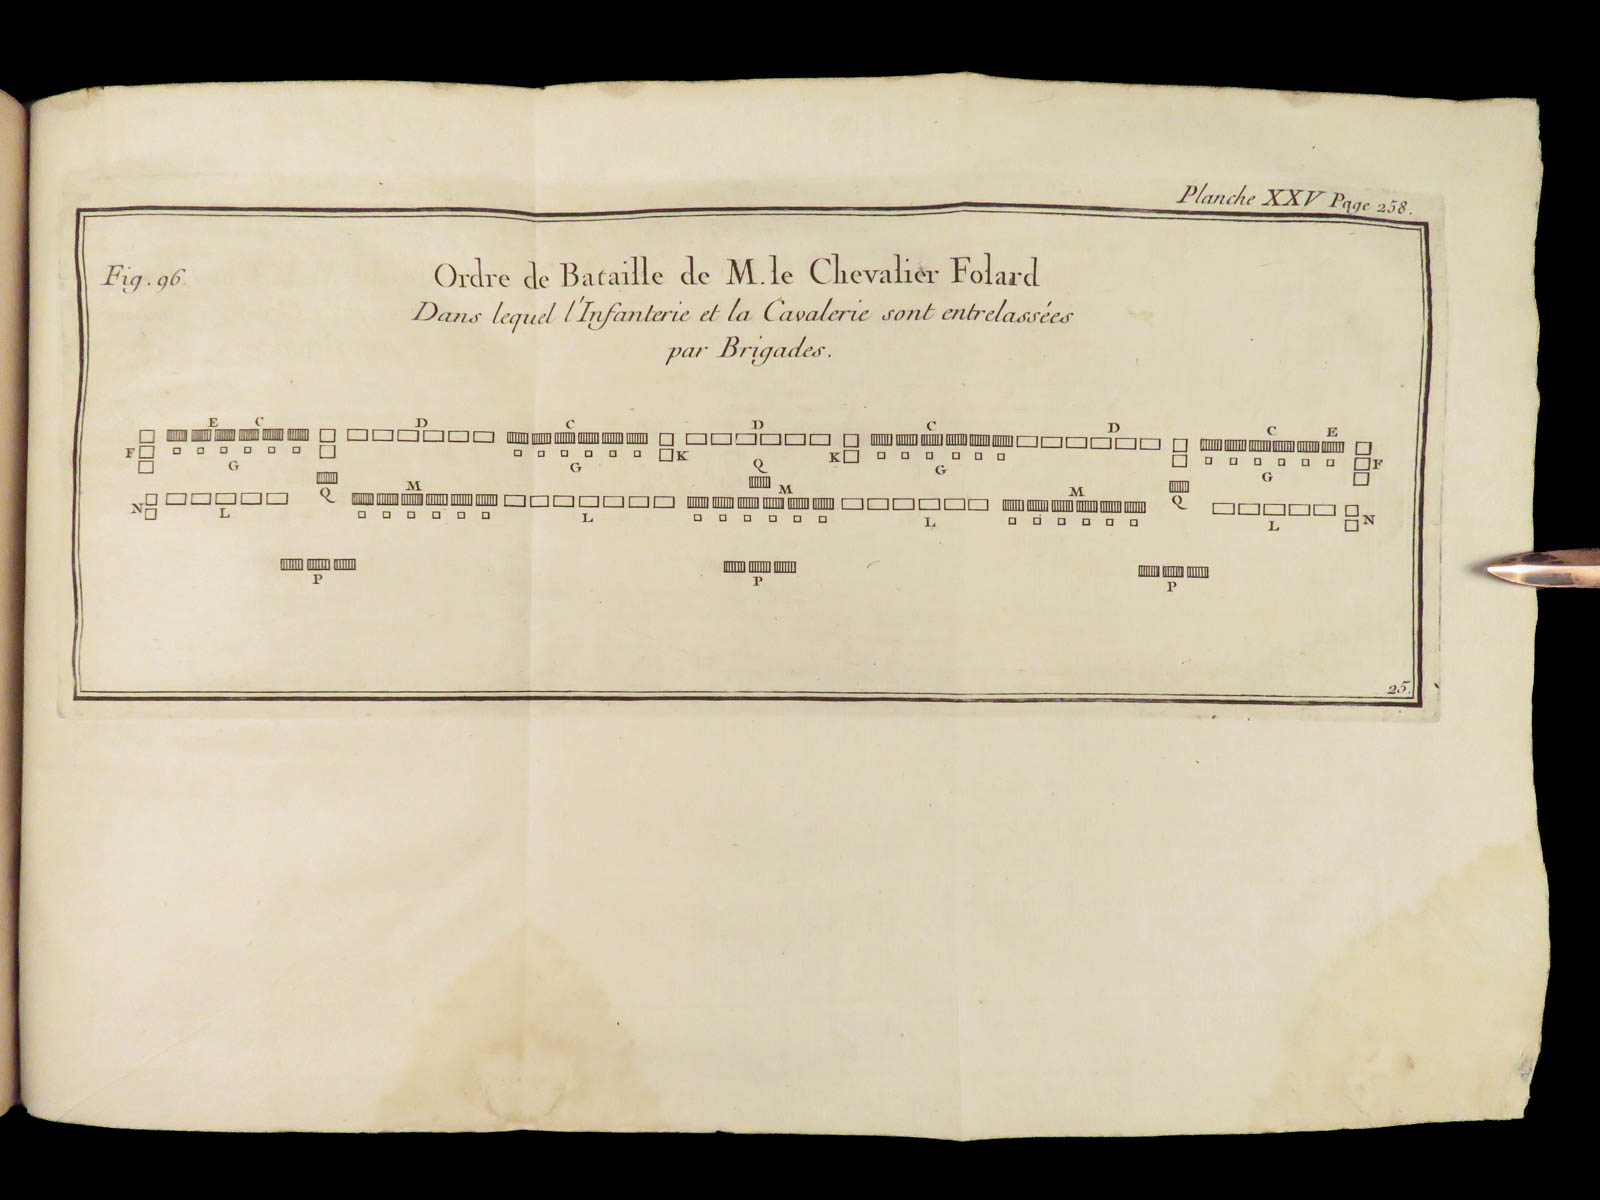 Planche XXV Page 258.
Fig. 96.
Ordre de Bataille de M. le Chevalier Folard
Dans lequel l'Infanterie et la Cavalerie sont entrelassées
par Brigades.
E C D C D C D C E
F G G K K G G F
Q Q Q
N L M L M L M L N
P P P
25.